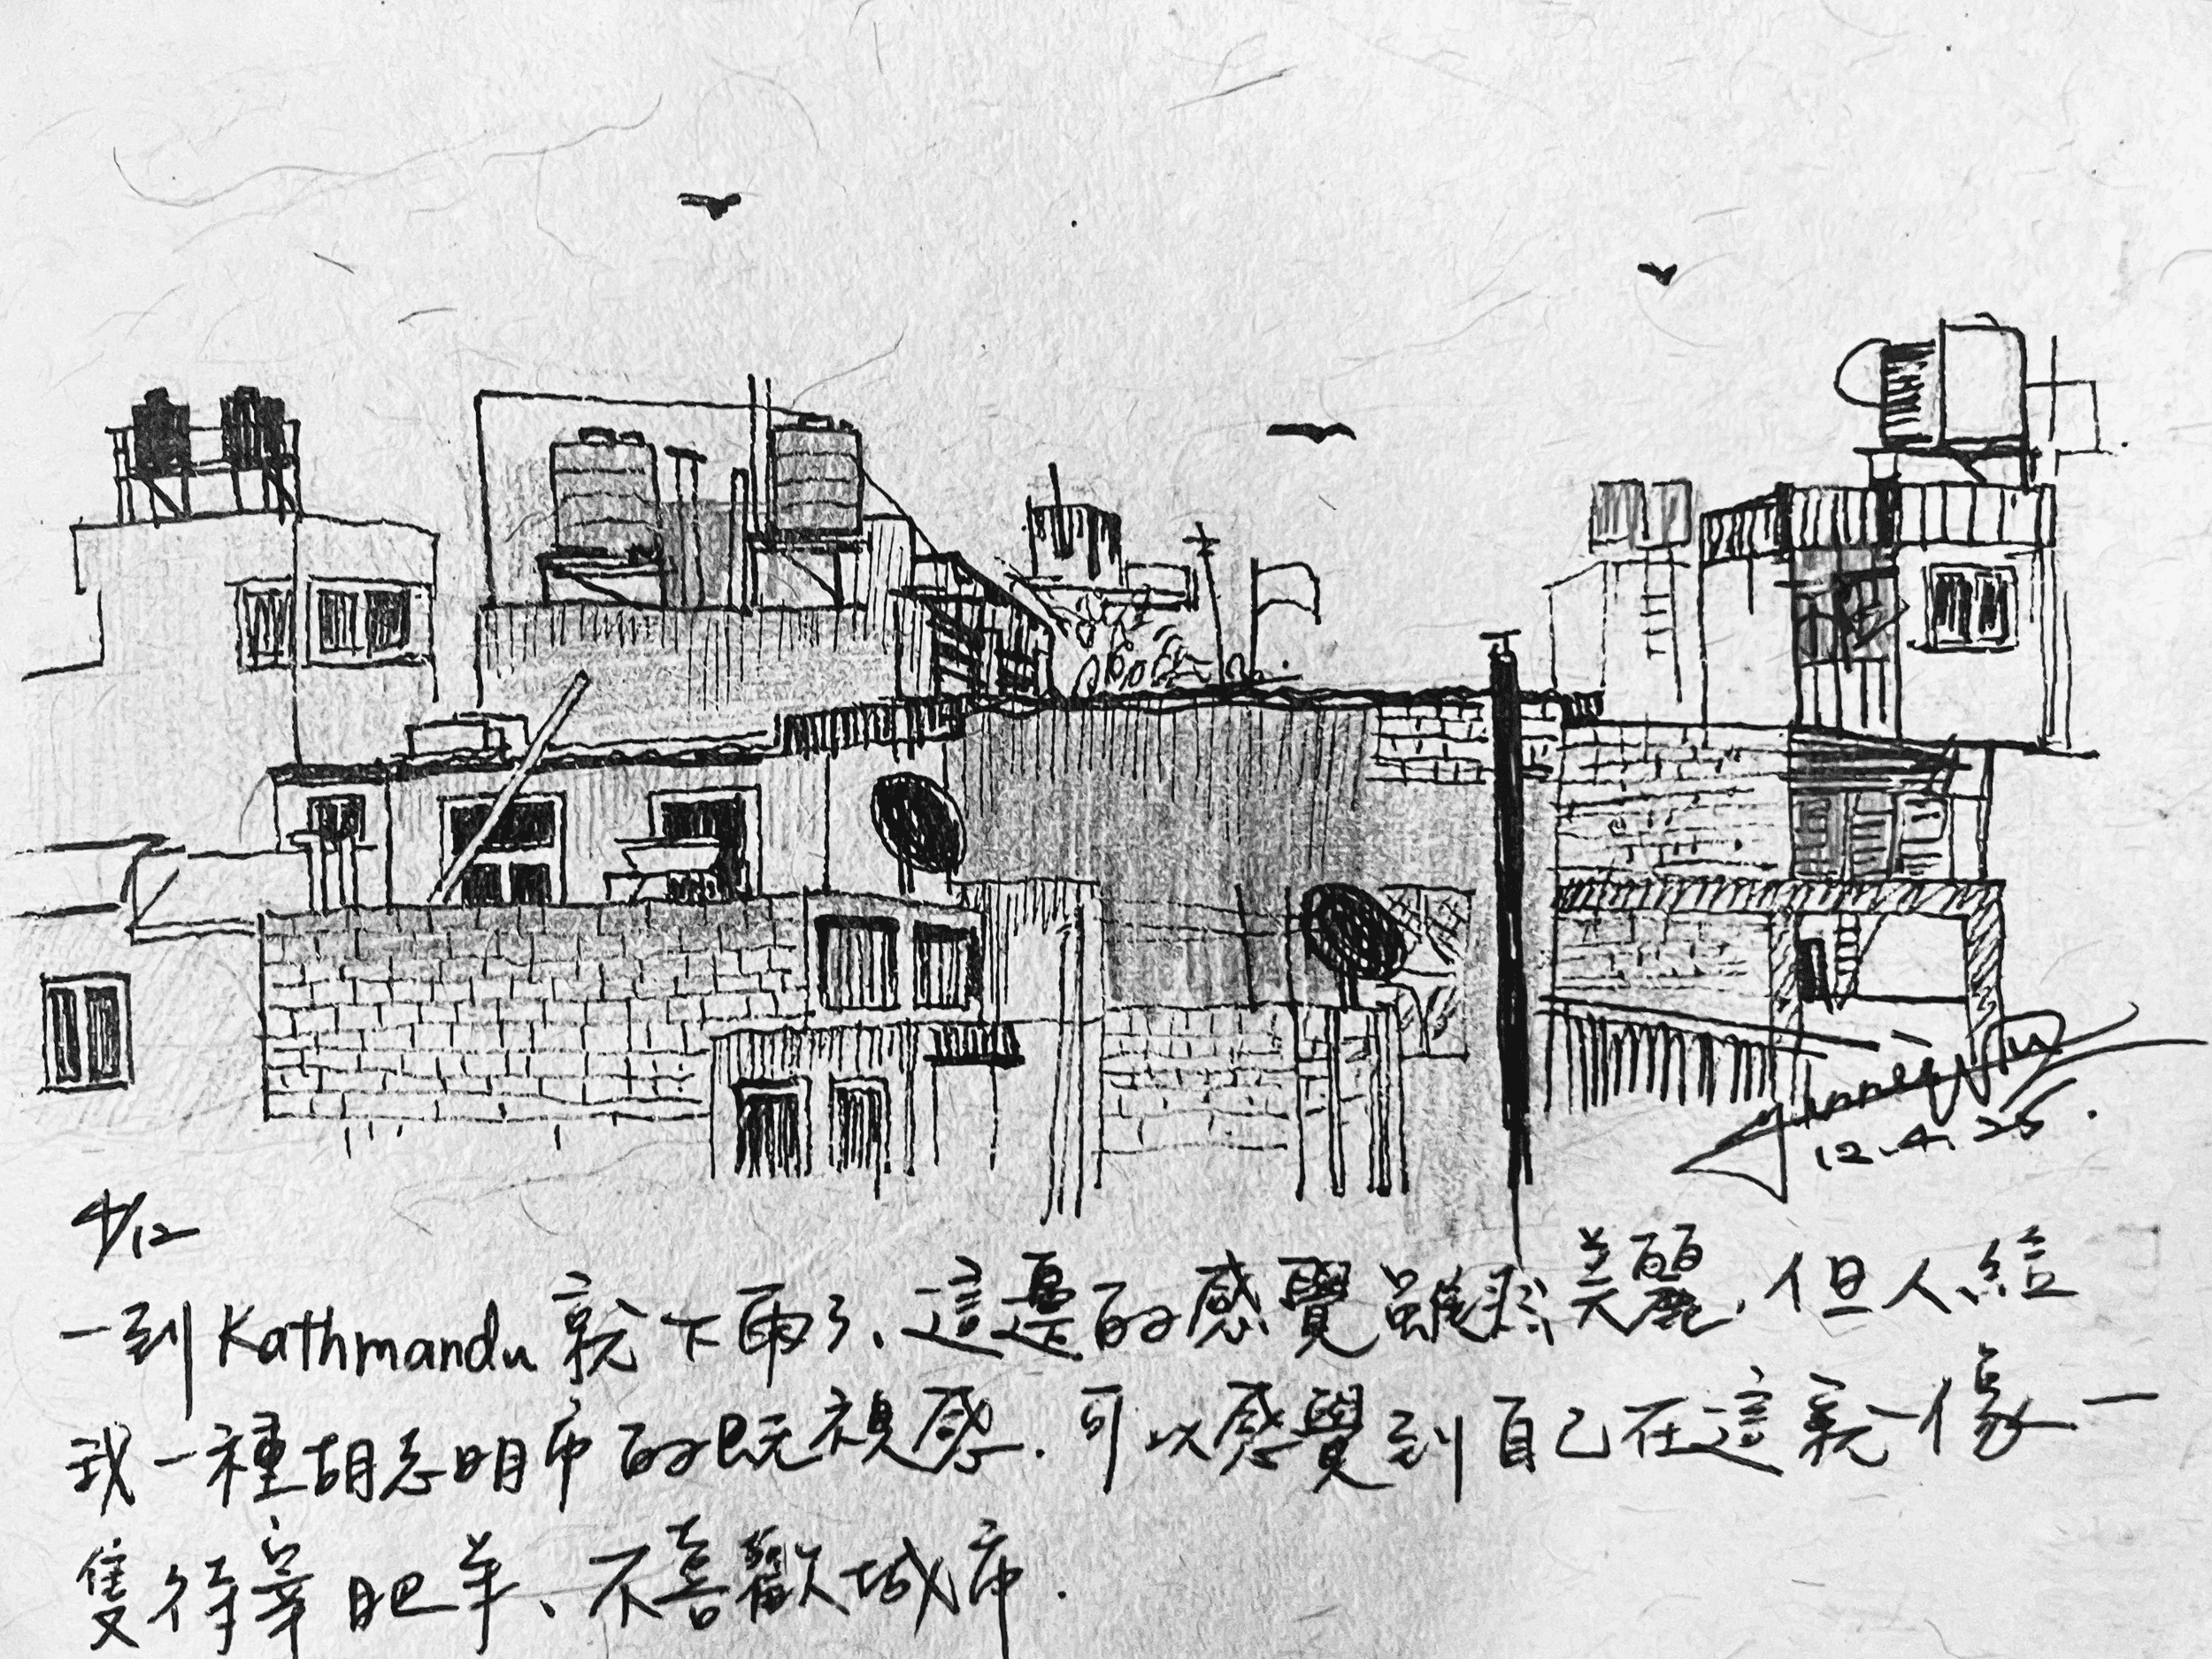 12.4.25.
4/12
一到Kathmandu就下雨了、這邊的感覺雖然美麗，但人給
我一種胡志明市的既視感．可以感覺到自己在這就像一
隻待宰肥羊、不喜歡城市．